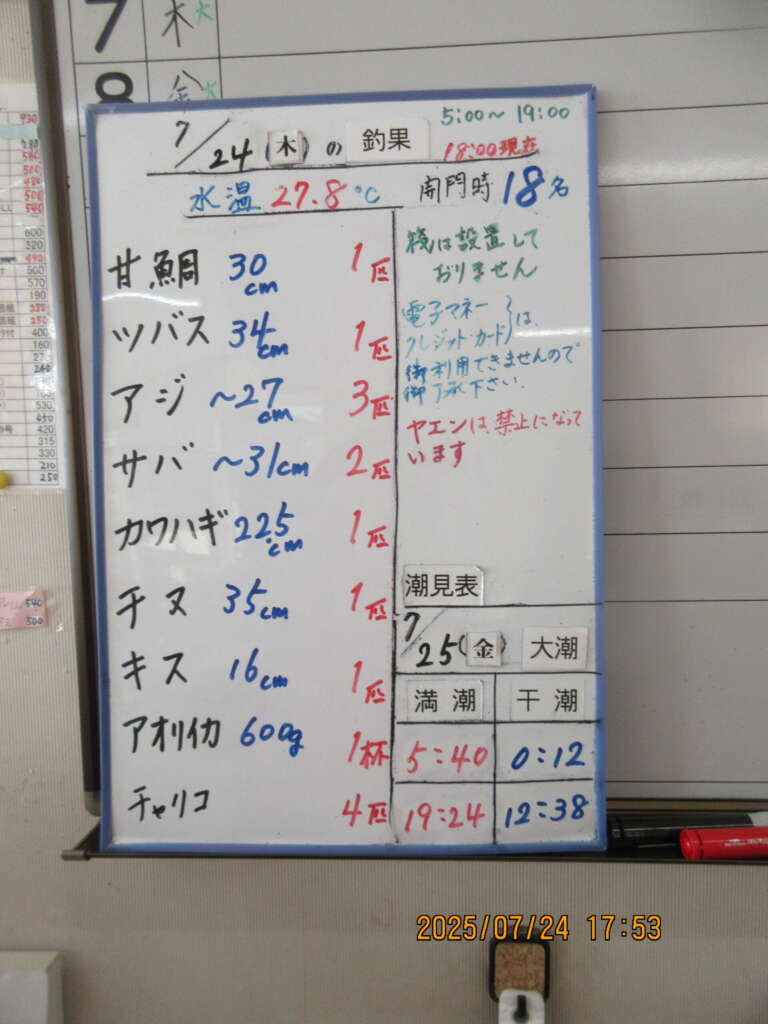 7 木 大
8 金 大
5:00～19:00
7/24(木)の 釣果
18:00現在
水温 27.8℃
開門時 18名
甘鯛 30cm 1匹
ツバス 34cm 1匹
アジ ～27cm 3匹
サバ ～31cm 2匹
カワハギ 22.5cm 1匹
チヌ 35cm 1匹
キス 16cm 1匹
アオリイカ 600g 1杯
チャリコ 4匹
筏は設置して
おりません
電子マネー
クレジット・カード}は、
御利用できませんので
御了承下さい.
ヤエンは、禁止になって
います
潮見表
7/25(金) 大潮
満潮 干潮
5:40 0:12
19:24 12:38
2025/07/24 17:53